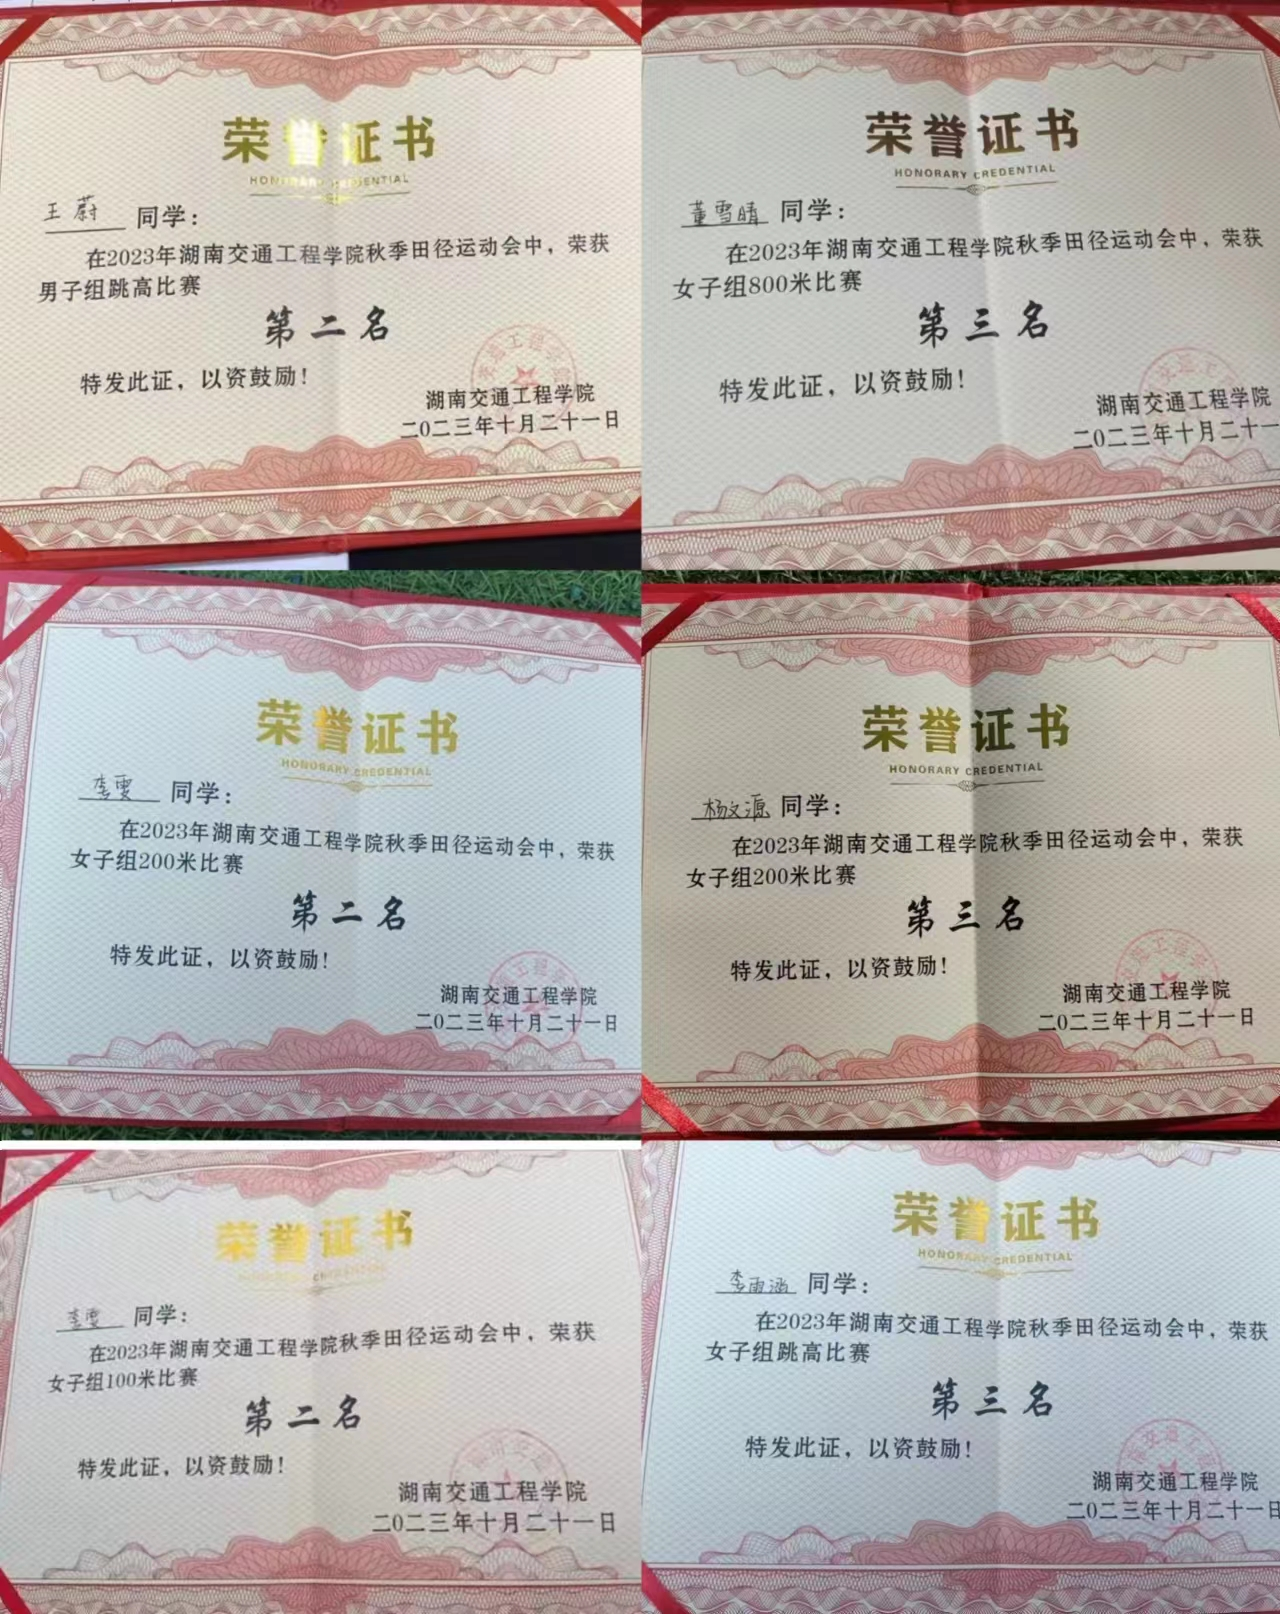 荣誉证书
HONORARY CREDENTIAL
王蔚 同学：
在2023年湖南交通工程学院秋季田径运动会中，荣获
男子组跳高比赛
第二名
特发此证，以资鼓励！
湖南交通工程学院
二〇二三年十月二十一日
荣誉证书
HONORARY CREDENTIAL
董雪晴 同学：
在2023年湖南交通工程学院秋季田径运动会中，荣获
女子组800米比赛
第三名
特发此证，以资鼓励！
湖南交通工程学院
二〇二三年十月二十一
荣誉证书
HONORARY CREDENTIAL
李雯 同学：
在2023年湖南交通工程学院秋季田径运动会中，荣获
女子组200米比赛
第二名
特发此证，以资鼓励！
湖南交通工程学院
二〇二三年十月二十一日
荣誉证书
HONORARY CREDENTIAL
杨文源 同学：
在2023年湖南交通工程学院秋季田径运动会中，荣获
女子组200米比赛
第三名
特发此证，以资鼓励！
湖南交通工程学院
二〇二三年十月二十一日
荣誉证书
HONORARY CREDENTIAL
李雯 同学：
在2023年湖南交通工程学院秋季田径运动会中，荣获
女子组100米比赛
第二名
特发此证，以资鼓励！
湖南交通工程学院
二〇二三年十月二十一日
荣誉证书
HONORARY CREDENTIAL
李雨涵 同学：
在2023年湖南交通工程学院秋季田径运动会中，荣获
女子组跳高比赛
第三名
特发此证，以资鼓励！
湖南交通工程学院
二〇二三年十月二十一日